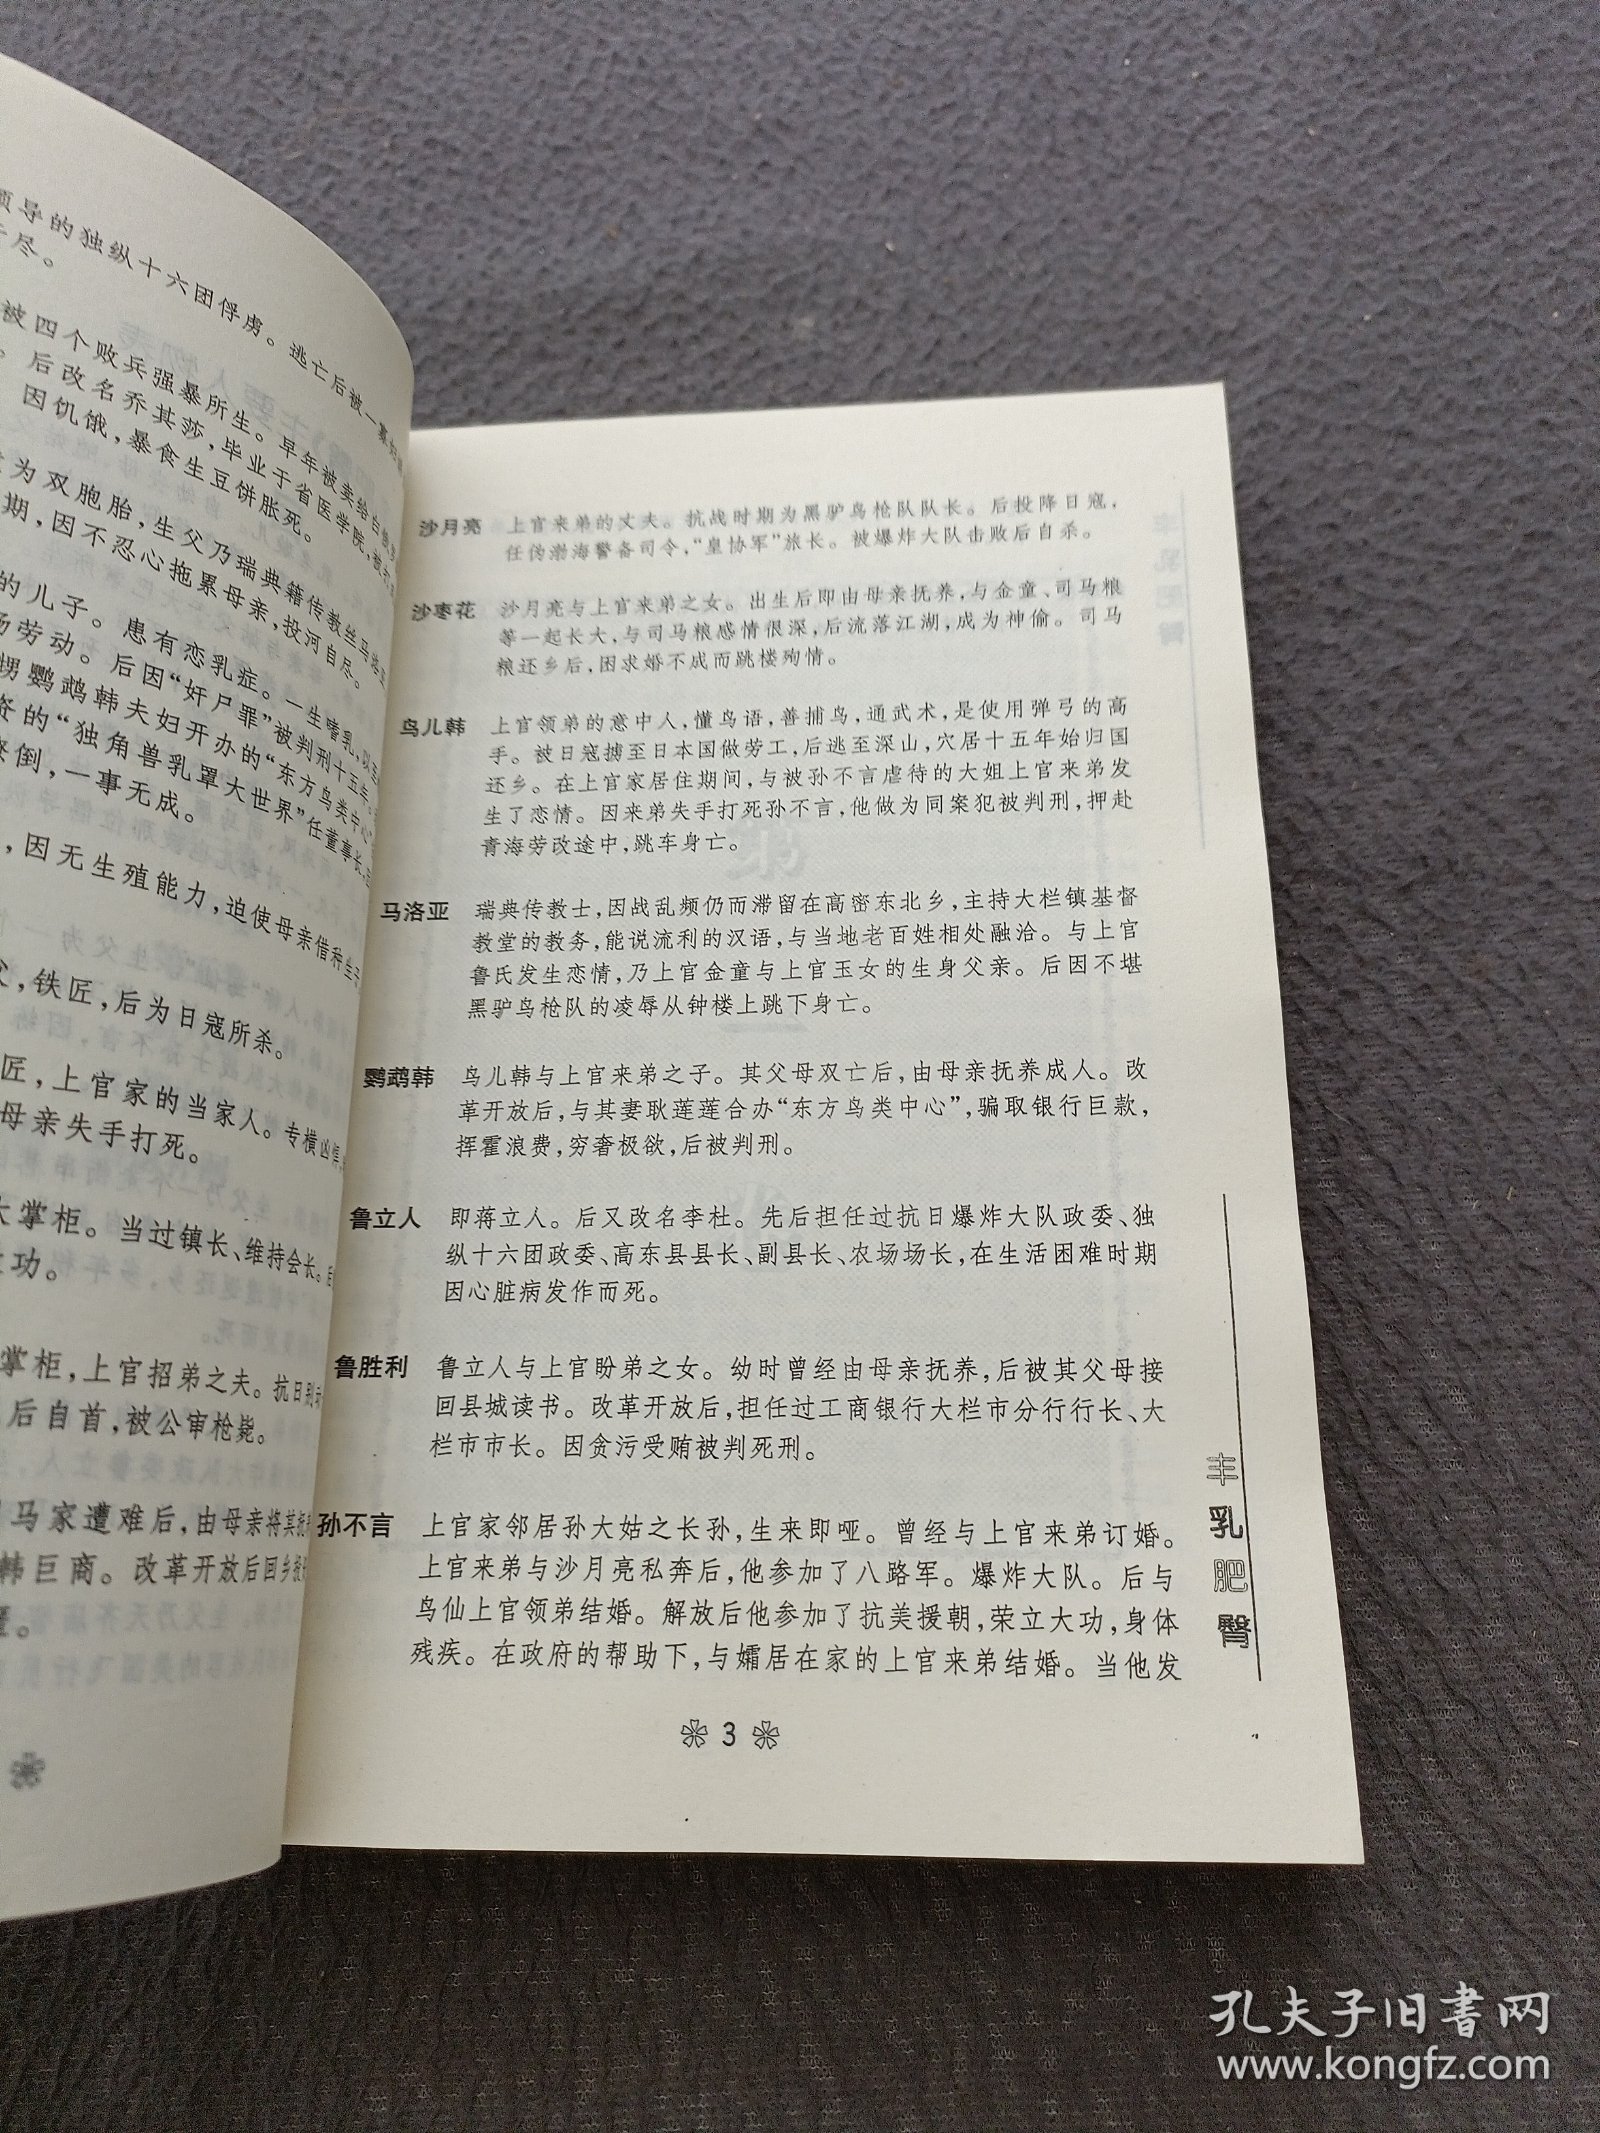 领导的独纵十六团俘虏。逃亡后被一寡妇
尽。
被四个败兵强暴所生。早年被卖给白俄
后改名乔其莎，毕业于省医学院，被
因饥饿，暴食生豆饼胀死。
为双胞胎，生父乃瑞典籍传教士马洛亚
期，因不忍心拖累母亲，投河自尽。
的儿子。患有恋乳症。一生嗜乳，以
场劳动。后因“奸尸罪”被判刑十五年。
甥鹦鹉韩夫妇开办的“东方鸟类中心”
资的“独角兽乳罩大世界”任董事长，
倒，一事无成。
，因无生殖能力，迫使母亲借种生
父，铁匠，后为日寇所杀。
匠，上官家的当家人。专横凶悍，
母亲失手打死。
大掌柜。当过镇长、维持会长。后
功。
掌柜，上官招弟之夫。抗日别动
后自首，被公审枪毙。
马家遭难后，由母亲将其抚
韩巨商。改革开放后回乡投
沙月亮 上官来弟的丈夫。抗战时期为黑驴鸟枪队队长。后投降日寇，
任伪渤海警备司令，“皇协军”旅长。被爆炸大队击败后自杀。
沙枣花 沙月亮与上官来弟之女。出生后即由母亲抚养，与金童、司马粮
等一起长大，与司马粮感情很深，后流落江湖，成为神偷。司马
粮还乡后，因求婚不成而跳楼殉情。
鸟儿韩 上官领弟的意中人，懂鸟语，善捕鸟，通武术，是使用弹弓的高
手。被日寇掳至日本国做劳工，后逃至深山，穴居十五年始归国
还乡。在上官家居住期间，与被孙不言虐待的大姐上官来弟发
生了恋情。因来弟失手打死孙不言，他做为同案犯被判刑，押赴
青海劳改途中，跳车身亡。
马洛亚 瑞典传教士，因战乱频仍而滞留在高密东北乡，主持大栏镇基督
教堂的教务，能说流利的汉语，与当地老百姓相处融洽。与上官
鲁氏发生恋情，乃上官金童与上官玉女的生身父亲。后因不堪
黑驴鸟枪队的凌辱从钟楼上跳下身亡。
鹦鹉韩 鸟儿韩与上官来弟之子。其父母双亡后，由母亲抚养成人。改
革开放后，与其妻耿莲莲合办“东方鸟类中心”，骗取银行巨款，
挥霍浪费，穷奢极欲，后被判刑。
鲁立人 即蒋立人。后又改名李杜。先后担任过抗日爆炸大队政委、独
纵十六团政委、高东县县长、副县长、农场场长，在生活困难时期
因心脏病发作而死。
鲁胜利 鲁立人与上官盼弟之女。幼时曾经由母亲抚养，后被其父母接
回县城读书。改革开放后，担任过工商银行大栏市分行行长、大
栏市市长。因贪污受贿被判死刑。
孙不言 上官家邻居孙大姑之长孙，生来即哑。曾经与上官来弟订婚。
上官来弟与沙月亮私奔后，他参加了八路军。爆炸大队。后与
鸟仙上官领弟结婚。解放后他参加了抗美援朝，荣立大功，身体
残疾。在政府的帮助下，与孀居在家的上官来弟结婚。当他发
3
丰乳肥臀
孔夫子旧书网
www.kongfz.com